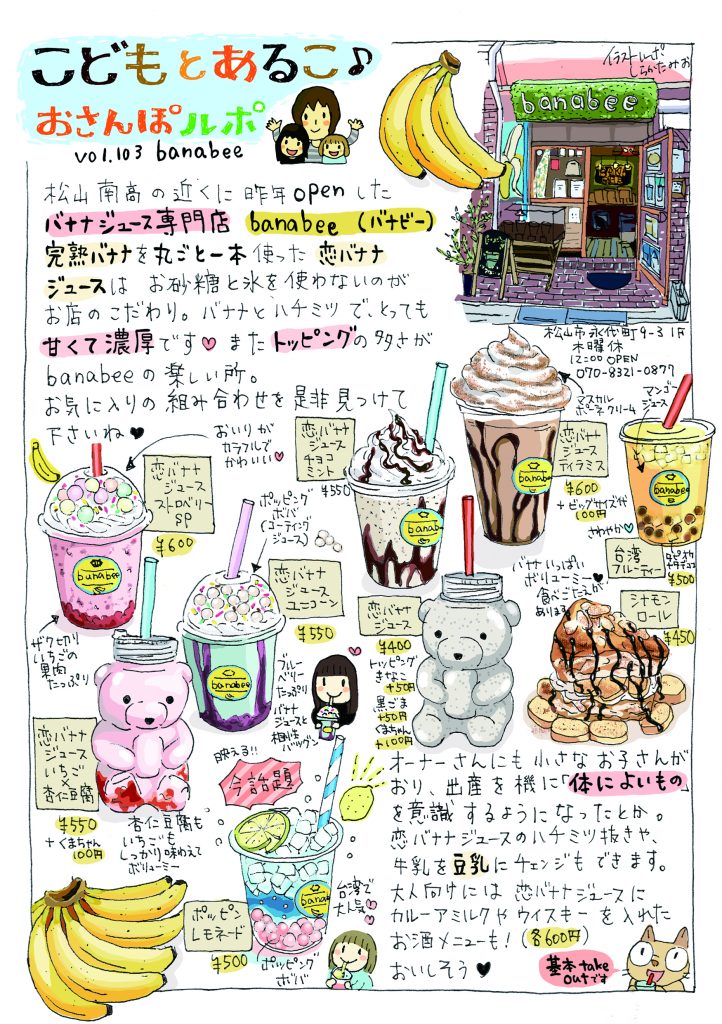 こどもとあるこ♪
おさんぽルポ
vol.103 banabee
イラストルポ
しらかたみお
banabee
松山南高の近くに昨年openした
バナナジュース専門店 banabee (バナビー)
完熟バナナを丸ごと一本使った 恋バナナ
ジュースは お砂糖と氷を使わないのが
お店のこだわり。バナナとハチミツで、とっても
甘くて濃厚です♥ また トッピングの多さが
banabeeの楽しい所。
お気に入りの組み合わせを是非見つけて
下さいね♥
松山市永代町9-3 1F
木曜休
12:00 OPEN
070-8321-0877
おいりが
カラフルで
かわいい♥
恋バナナ
ジュース
ストロベリー
SP
¥600
banabee
ザク切り
いちごの
果肉
たっぷり
ポッピング
ボバ
(コーティング
ジュース)
恋バナナ
ジュース
ユニコーン
¥550
banabee
ブルー
ベリー
たっぷり
バナナ
ジュースと
相性
バツグン
恋バナナ
ジュース
チョコ
ミント
¥550
banabee
マスカル
ポーネクリーム
恋バナナ
ジュース
ティラミス
¥600
+ビッグサイズ代
100円
banabee
マンゴー
ジュース
banabee
さわやか♡
台湾
フルーティー
タピオカ
ナタデココ
¥500
恋バナナ
ジュース
¥400
トッピング
きなこ
+50円
黒ごま
+50円
くまちゃん
+100円
バナナいっぱい
ボリューミー♥
食べごたえが
あります
シナモン
ロール
¥450
恋バナナ
ジュース
いちご
×
杏仁豆腐
¥550
+くまちゃん
100円
杏仁豆腐も
いちごも
しっかり味わえて
ボリューミー
映える!!
今話題
台湾で
大人気♥
ポッピン
レモネード
¥500
ポッピング
ボバ
オーナーさんにも小さなお子さんが
おり、出産を機に「体によいもの」
を意識するようになったとか。
恋バナナジュースのハチミツ抜きや、
牛乳を豆乳にチェンジもできます。
大人向けには 恋バナナジュースに
カルーアミルクやウイスキーを入れた
お酒メニューも! (各600円)
おいしそう♥
基本take
outです